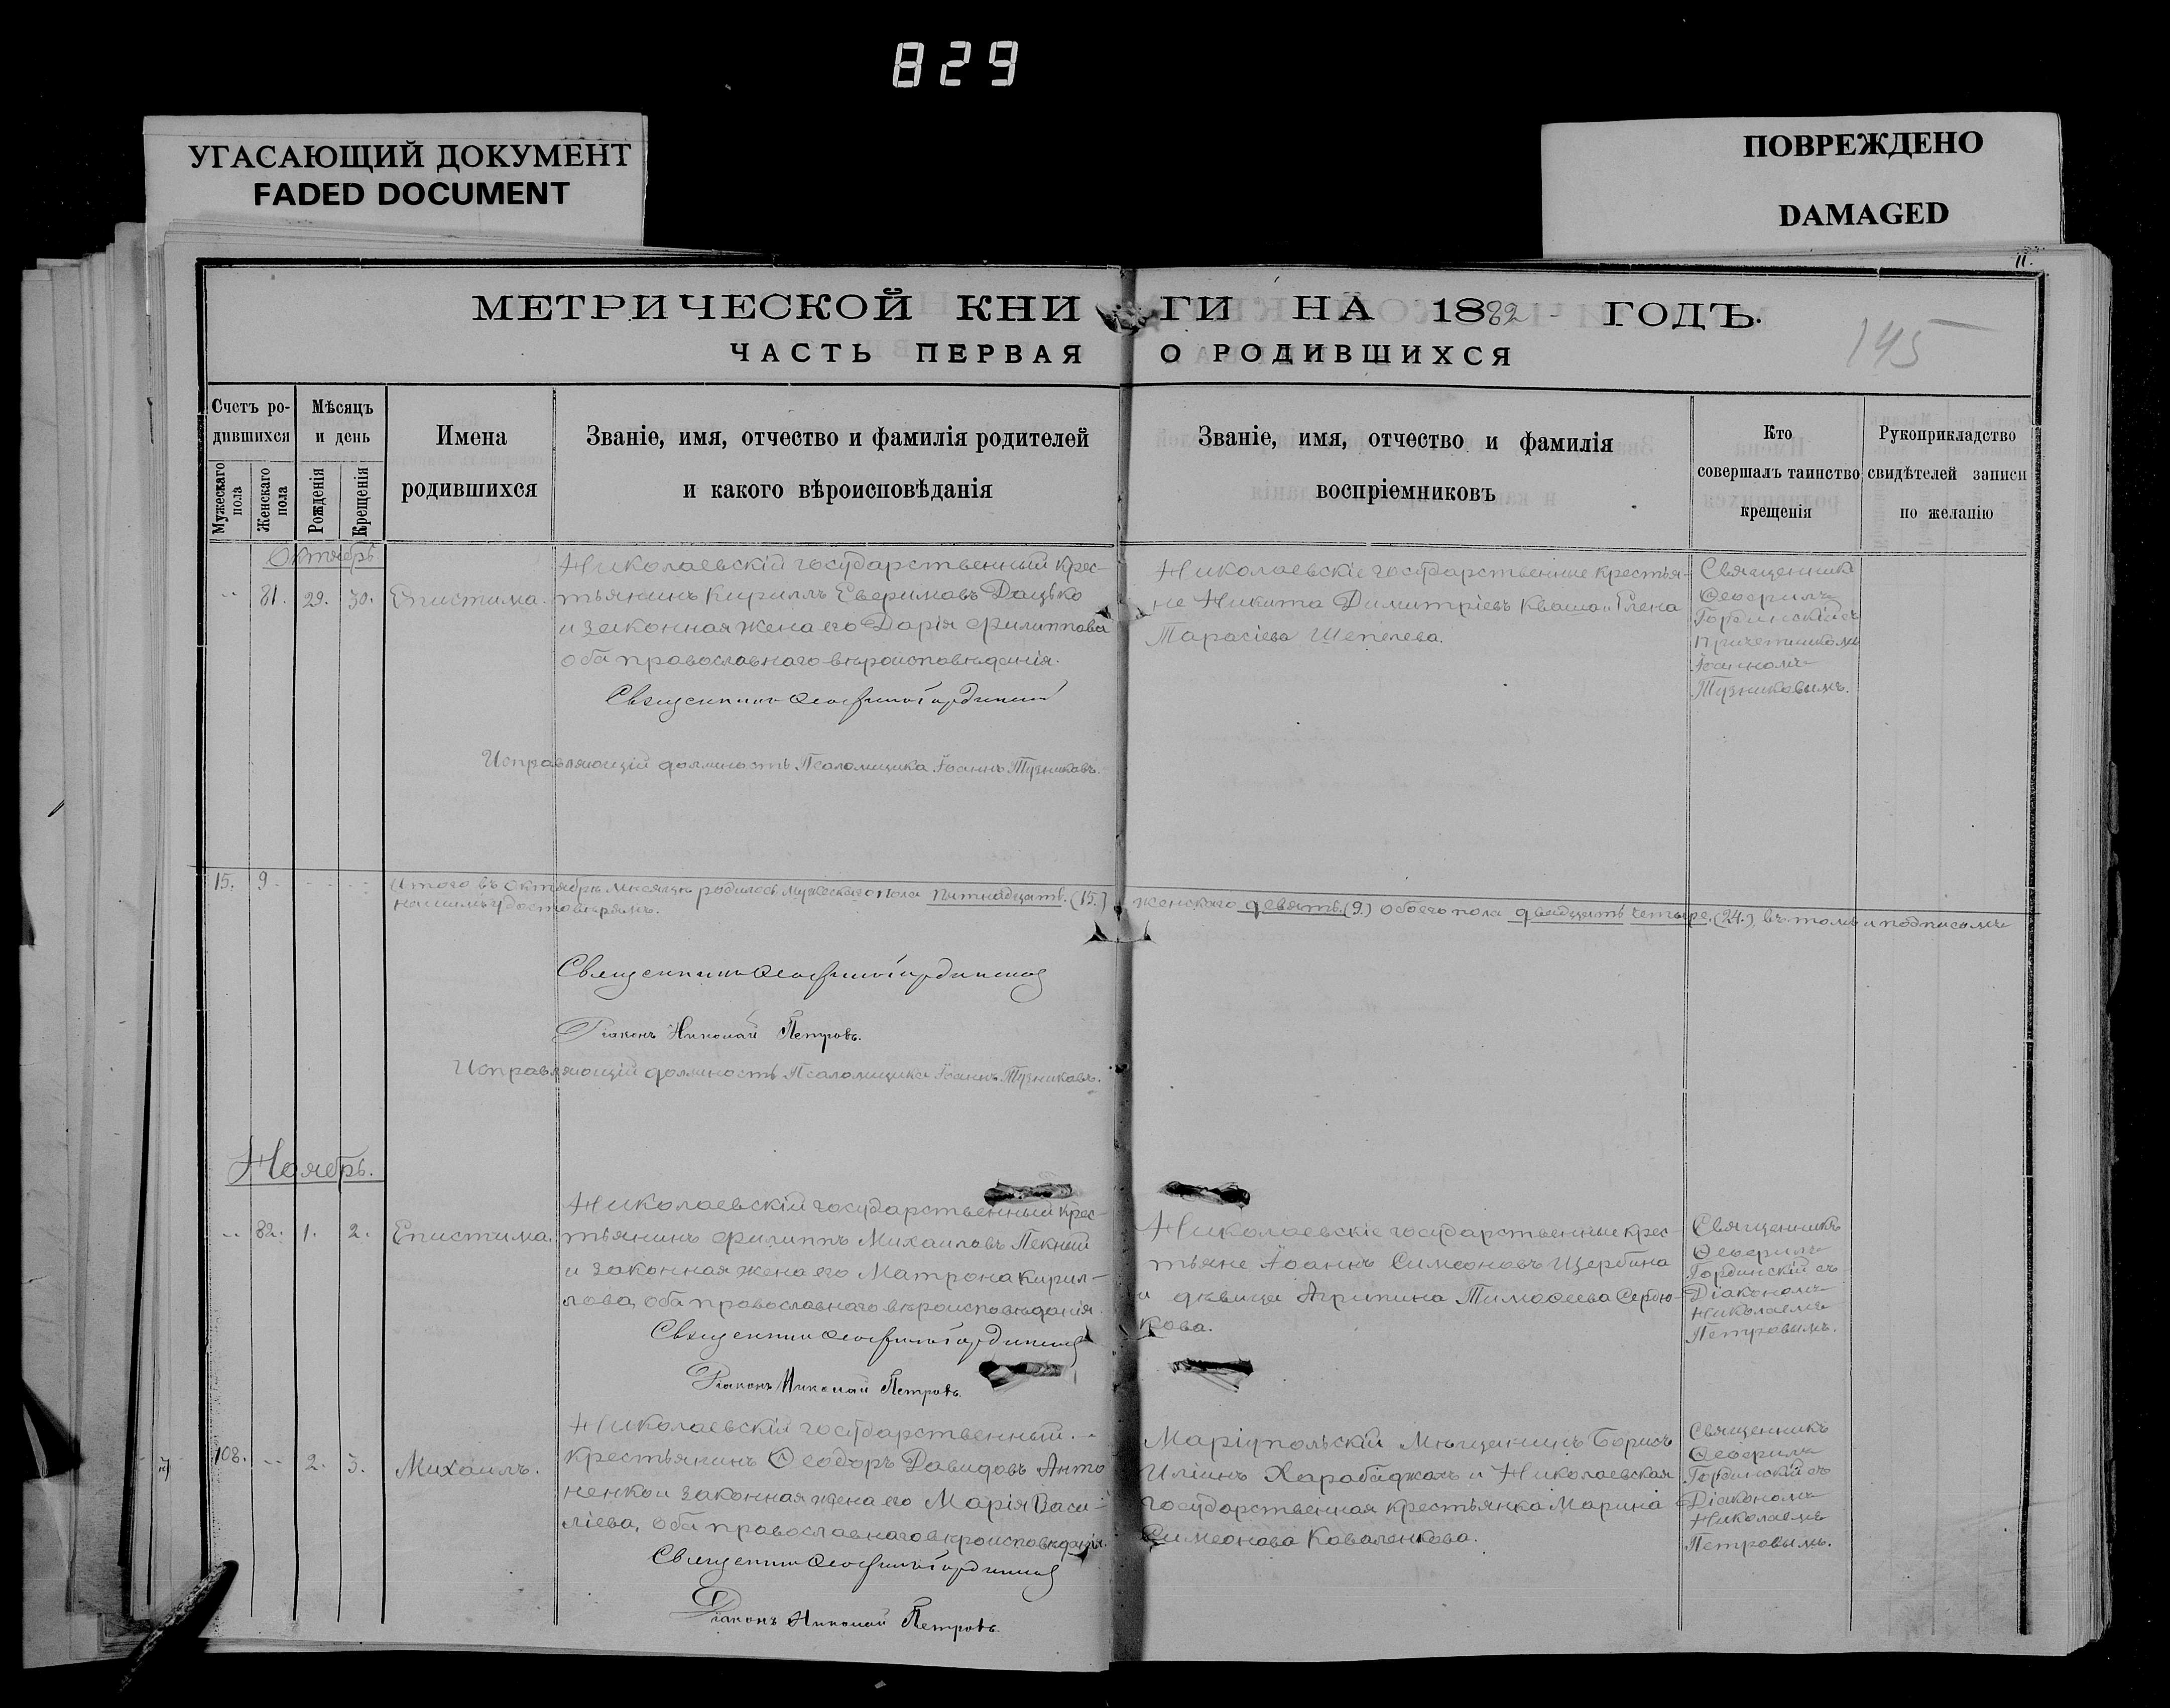 829
УГАСАЮЩИЙ ДОКУМЕНТ
FADED DOCUMENT
ПОВРЕЖДЕНО
DAMAGED
11.
МЕТРИЧЕСКОЙ КНИГИ НА 1882 ГОДЪ.
145
ЧАСТЬ ПЕРВАЯ О РОДИВШИХСЯ
Счетъ ро-
дившихся
Мужескаго пола
Женскаго пола
Мѣсяцъ
и день
Рожденія
Крещенія
Имена
родившихся
Званіе, имя, отчество и фамилія родителей
и какого вѣроисповѣданія
Званіе, имя, отчество и фамилія
воспріемниковъ
Кто
совершалъ таинство
крещенія
Рукоприкладство
свидѣтелей записи
по желанію
Октябрь
81. 29. 30. Епистима.
Николаевскій государственный крес-
тьянинъ Кириллъ Евфимовъ Дацько
и законная жена его Дарія Филиппова
оба православнаго вѣроисповѣданія.
Священникъ Ѳеофилъ Гординскій
Исправляющій должность Псаломщика Іоаннъ Тузниковъ.
Николаевскіе государственные крестья-
не Никита Димитріевъ Кваша и Елена
Тарасіева Шепелева.
Священникъ
Ѳеофилъ
Гординскій съ
Причетникомъ
Іоанномъ
Тузниковымъ.
15. 9. Итого въ Октябрѣ мѣсяцѣ родилось мужескаго пола пятнадцать. (15.) женскаго девять. (9.) Обоего пола двадцать четыре. (24.), въ томъ и подписомъ
нашимъ удостовѣряемъ.
Священникъ Ѳеофилъ Гординскій
Діаконъ Николай Петровъ.
Исправляющій должность Псаломщика Іоаннъ Тузниковъ.
Ноябрь.
82. 1. 2. Епистима.
Николаевскій государственный крес-
тьянинъ Филиппъ Михаиловъ Пекный
и законная жена его Матрона Кирил-
лова, оба православнаго вѣроисповѣданія.
Священникъ Ѳеофилъ Гординскій
Діаконъ Николай Петровъ.
Николаевскіе государственные крес-
тьяне Іоаннъ Симеоновъ Щербина
и дѣвица Агрипина Тимоѳеева Сердю-
кова.
Священникъ
Ѳеофилъ
Гординскій съ
Діакономъ
Николаемъ
Петровымъ.
108. 2. 3. Михаилъ.
Николаевскій государственный
крестьянинъ Ѳеодоръ Давидовъ Анто
ненко и законная жена его Марія Васи-
ліева, оба православнаго вѣроисповѣданія.
Священникъ Ѳеофилъ Гординскій
Діаконъ Николай Петровъ.
Маріупольскій Мѣщанинъ Борисъ
Иліинъ Харабаджахъ и Николаевская
государственная крестьянка Марина
Симеонова Коваленкова.
Священникъ
Ѳеофилъ
Гординскій съ
Діакономъ
Николаемъ
Петровымъ.